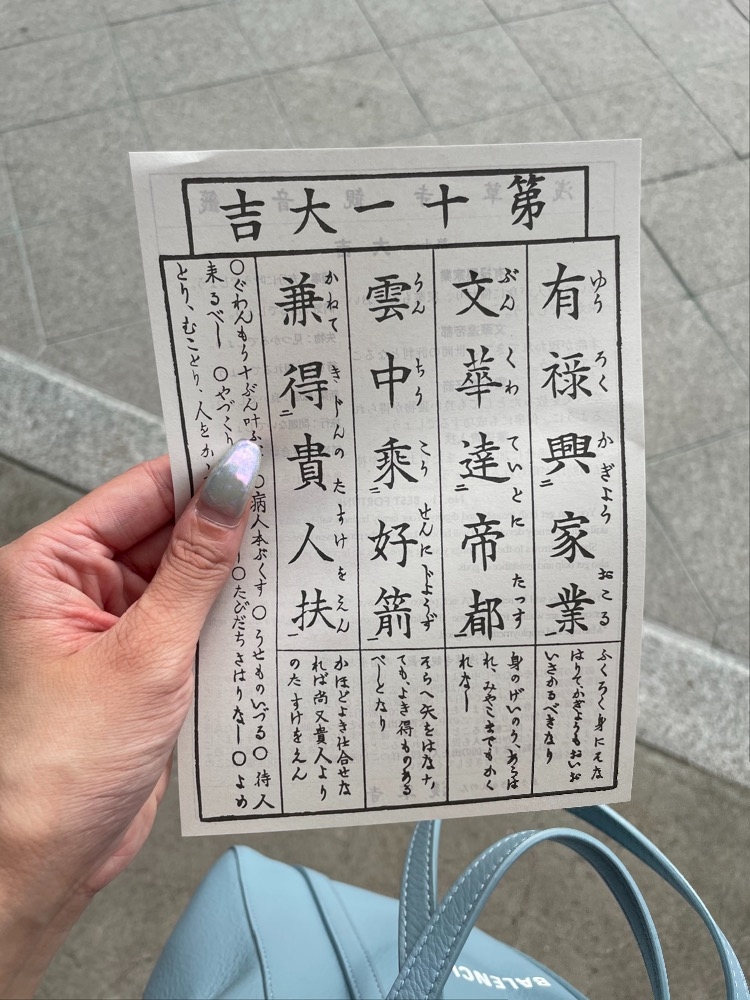 第十一大吉
ゆう ろく かぎよう おこる
有禄興二家業一
ふくろく身にそな
はりて、かぎようもおいお
いさかるべきなり
ぶん くわ ていとに たっす
文華達二帝都一
身のげいのう、あらは
れ、みやこまでもかく
れなし
うん ちう こう せんにじようず
雲中乗二好箭一
そらへ矢をはなす、
ても、よき得ものある
べしとなり
かねて きじんの たすけを えん
兼得二貴人扶一
かほどよき仕合せな
れば尚又貴人より
のたすけをえん
〇ぐわんもう十ぶん叶ふ、〇病人本ぷくす〇うせものいづる〇待人
来るべし 〇やづくり 〇たびだちさはりなし〇よめ
とり、むことり、人をか
BALENC